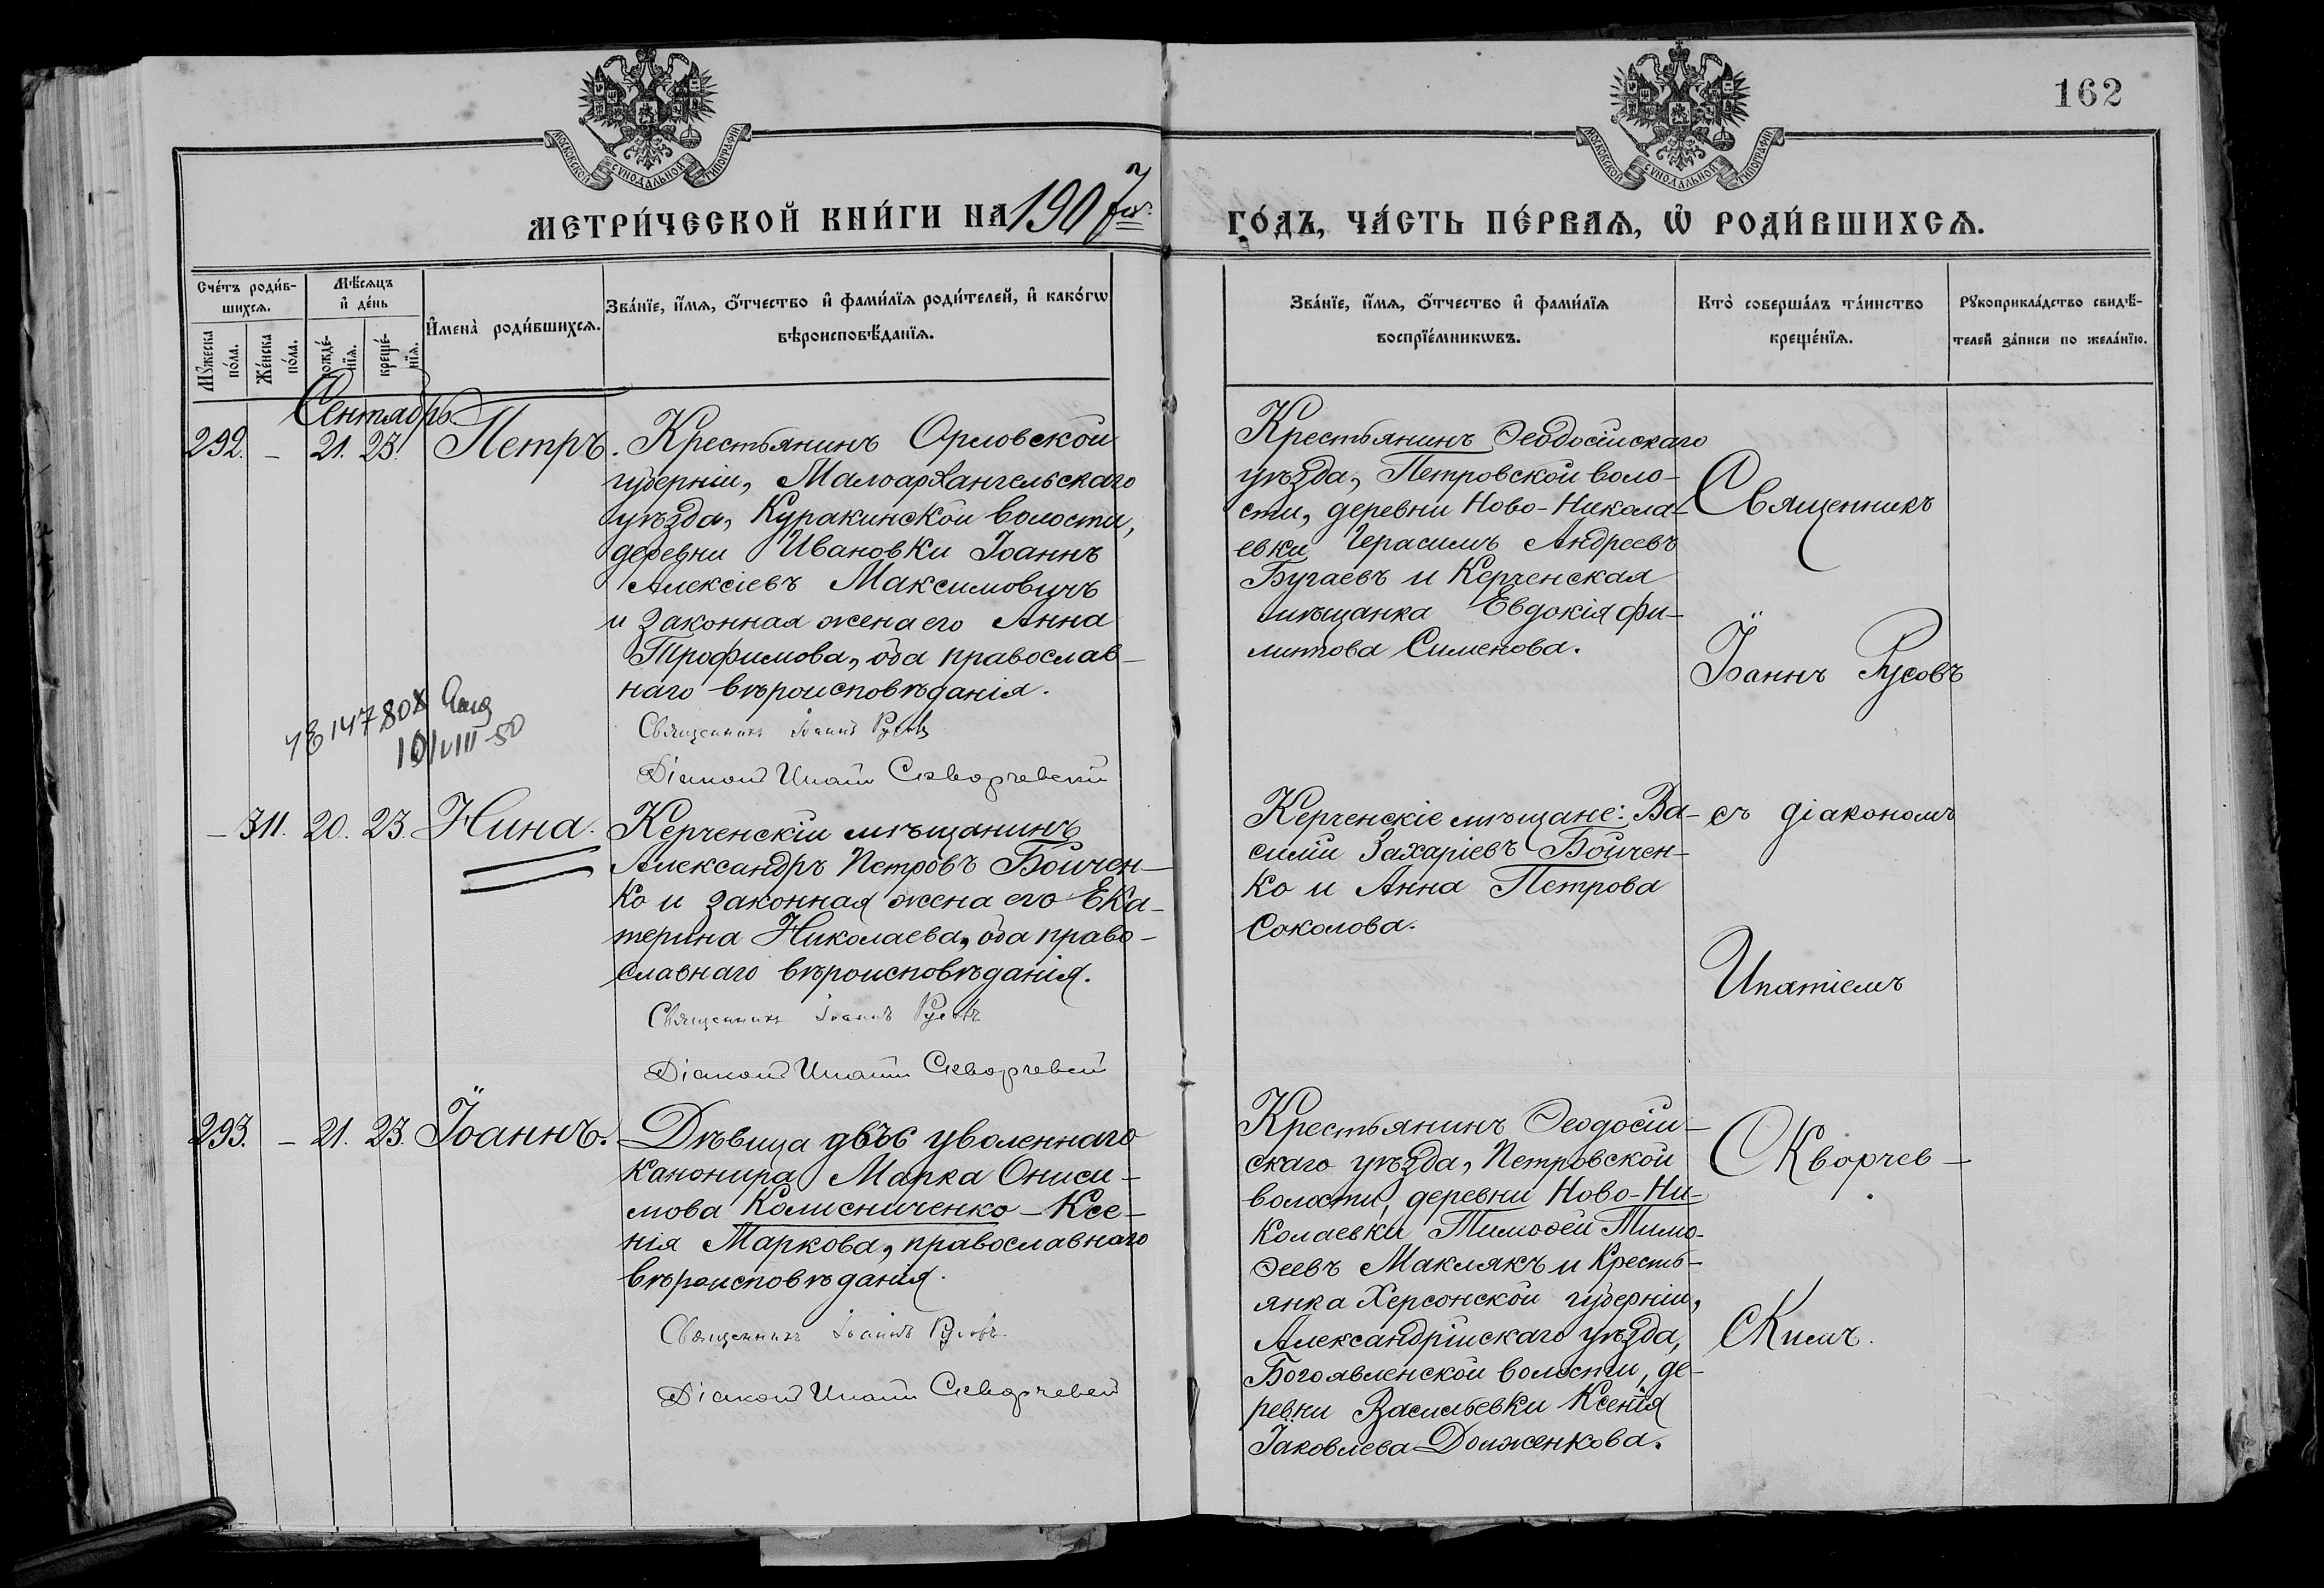 МОСКОВСКОЙ СѴНОДАЛЬНОЙ ТИПОГРАФІИ
МОСКОВСКОЙ СѴНОДАЛЬНОЙ ТИПОГРАФІИ
162
МЕТРИ́ЧЕСКОЙ КНИ́ГИ НА 1907 го́
ГО́ДЪ, ЧА́СТЬ ПЕ́РВАѦ, Ѡ҆ РОДИ́ВШИХСѦ.
Сче́тъ роди́в-
шихсѧ.
Мꙋ́жеска по́ла.
Же́нска по́ла.
Мѣ́сѧцъ
и҆ де́нь
рожде́-
нїѧ.
креще́-
нїѧ.
И҆мена̀ роди́вшихсѧ.
Зва́нїе, и҆́мѧ, ѻ҆́тчество и҆ фами́лїѧ роди́телей, и҆ како́гѡ
вѣроисповѣ́данїѧ.
Зва́нїе, и҆́мѧ, ѻ҆́тчество и҆ фами́лїѧ
воспрїе́мникѡвъ.
Кто̀ соверша́лъ та́инство
креще́нїѧ.
Рꙋкоприкла́дство свидѣ́-
телей за́писи по жела́нїю.
Сентябрь
292. – 21. 23. Петръ.
Крестьянинъ Орловской
губерніи, Малоархангельскаго
уѣзда, Куракинской волости,
деревни Ивановки Іоаннъ
Алексіевъ Максимовичъ
и законная жена его Анна
Трофимова, оба православ-
наго вѣроисповѣданія.
Священникъ Іоаннъ Русовъ
Діаконъ Ипатій Скворчевскій
Крестьянинъ Ѳеодосійскаго
уѣзда, Петровской воло-
сти, деревни Ново-Никола-
евки Герасимъ Андреевъ
Бугаевъ и Керченская
мѣщанка Евдокія Фи-
липпова Сименова.
Священникъ
Іоаннъ Русовъ
147808
10/VIII-50
– 311. 20. 23. Нина.
Керченскій мѣщанинъ
Александръ Петровъ Бойчен-
ко и законная жена его Ека-
терина Николаева, оба право-
славнаго вѣроисповѣданія.
Священникъ Іоаннъ Русовъ
Діаконъ Ипатій Скворчевскій
Керченскіе мѣщане: Ва-
силій Захаріевъ Бойчен-
ко и Анна Петрова
Соколова.
съ діакономъ
Ипатіемъ
293. – 21. 23. Іоаннъ.
Дѣвица дѣвь уволеннаго
канонира Марка Ониси-
мова Колисниченко – Ксе-
нія Маркова, православнаго
вѣроисповѣданія.
Священникъ Іоаннъ Русовъ
Діаконъ Ипатій Скворчевскій
Крестьянинъ Ѳеодосій-
скаго уѣзда, Петровской
волости, деревни Ново-Ни-
колаевки Тимоѳей Тимо-
ѳеевъ Маклякъ и Кресть-
янка Херсонской губерніи,
Александрійскаго уѣзда,
Богоявленской волости, де-
ревни Васильевки Ксенія
Іаковлева Долженкова.
Скворчев-
скимъ.